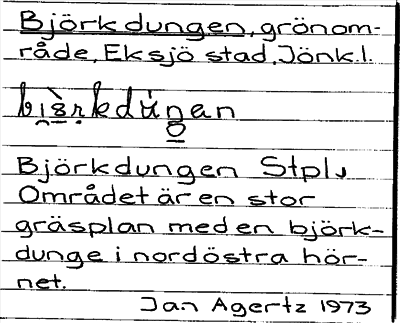 Björkdungen, grönom-
råde, Eksjö stad, Jönk.l.
Björkdungen Stpl,
Området är en stor
gräsplan med en björk-
dunge i nordöstra hör-
net.
Jan Agertz 1973